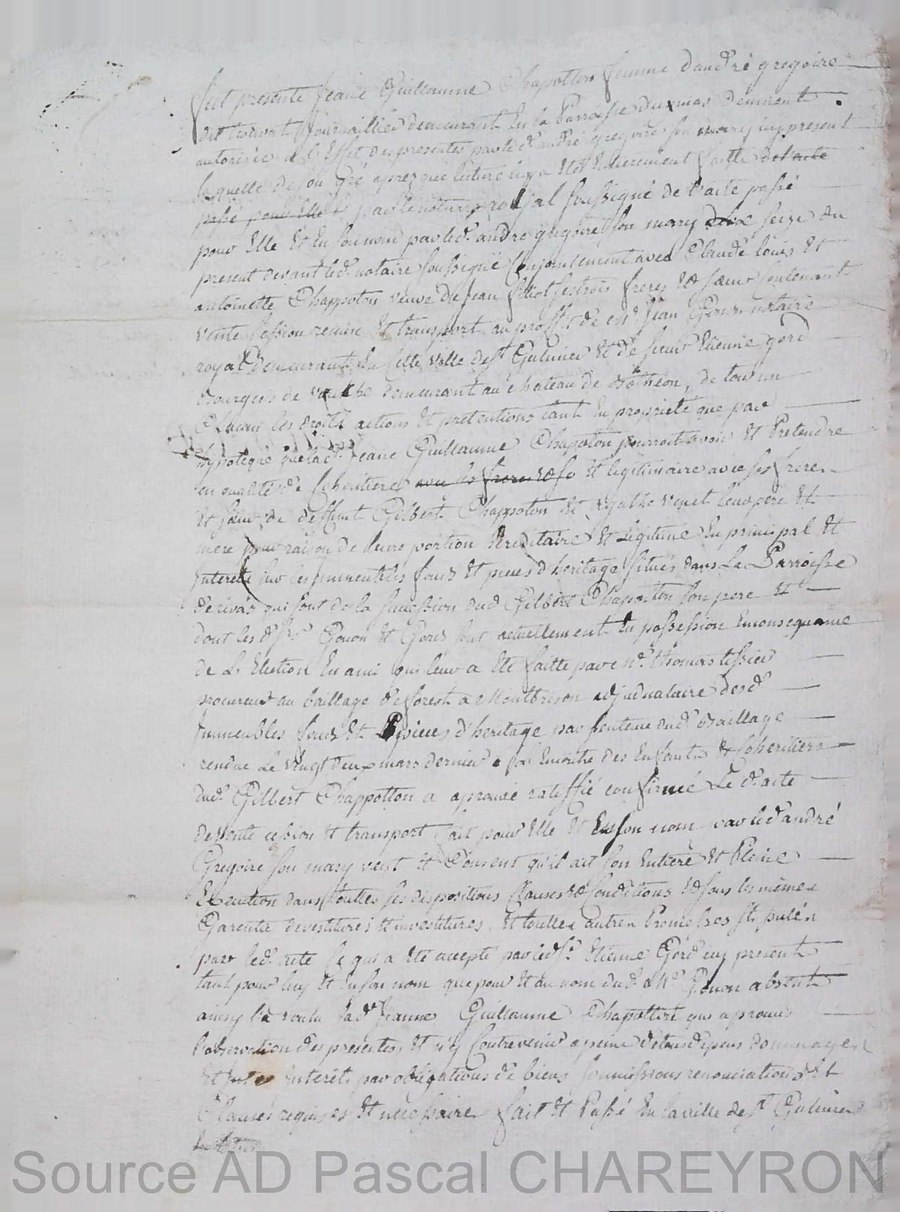 fut presente Jeanne Guillaume Chapotton femme d'andré gregoire
dit journallier demeurant En la Parroisse du mas demeurant
autorisée a l'Effet des presentes par led. andré gregoire son mary icy present
laquelle de son Gré apres que lecture luy a Eté Entierement faitte de l'acte
passé pour Elle par le notaire royal soussigné de l'acte passé
pour Elle Et En son nom par led. andré gregoire son mary seize du
present devant led. notaire soussigné Conjointement avec Claude Louis Et
antoinette Chappoton veuve de Jean ses trois freres Et sœur portant
vente cession remise Et transport au proffit de me. Jean Gonon notaire
royal demeurant En Cette ville de st. Galmier Et de sieur Etienne Gord
Bourgeois de demeurant au chateau de Botheon, de tous un
Chacun les droits actions Et pretentions tant En proprieté que par
hypoteque que lad. Jeane Guillaume Chapoton pourroit avoir Et Pretendre
en qualité de Coheritiere Et legitimaire avec ses freres
Et sœur de deffunt Gilbert Chappoton Et agathe leurs pere Et
mere pour raison de leurs portion hereditaire Et legitime En principal Et
interets sur les immeubles fonds Et pieces d'heritage situés dans La Parroisse
de rivas qui sont de la succession dud. Gilbert Chapotton son pere Et
dont les d. srs. Gonon Et Gord sont actuellement En possession En consequance
de L'Election En ami qui leur a Eté faitte par me. Thomas tissier
procureur au baillage de forest a Montbrison adjudicataire desd.
immeubles fonds Et pieces d'heritage par sentence dud. Baillage
rendue Le vingt deux mars dernier des Enfants & Coheritiers
dud. Gilbert Chappotton a aprouvé ratiffié confirmé Le d. acte
de vente cession Et transport fait pour Elle Et En son nom par led. andré
Gregoire son mary veut Et Consent qu'il ait son Entiere Et Pleine
Execution dans touttes ses dispositions Clauses & Conditions & sous les mêmes
Garentie devestitures Et investitures, Et touttes autres Promesses stipulées
par led. acte Ce qui a Eté accepté par led. sr. Etienne Gord icy present
tant pour luy Et En son nom que pour Et au nom dud. Me. Gonon absent
ainsy l'a voulu lad. Jeanne Guillaume Chapotton qui a promis
l'observation des presentes, Et n'y Contrevenir a peine de tous depens dommages
Et interets par obligations de biens soumissions renonciations Et
Clauses requises Et necessaire fait Et Passé En la ville de st. Galmier
Source AD Pascal CHAREYRON